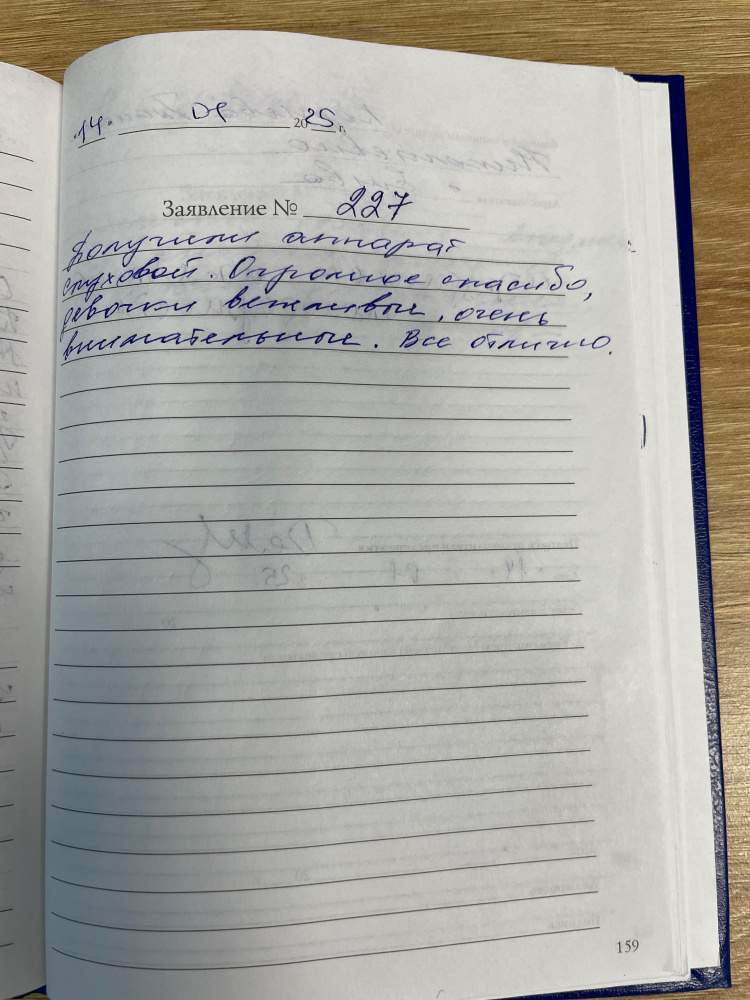 "14" 01 2025 г.
Заявление № 227
Получили аппарат
слуховой. Огромное спасибо,
девочки вежливые, очень
внимательные. Все отлично.
159